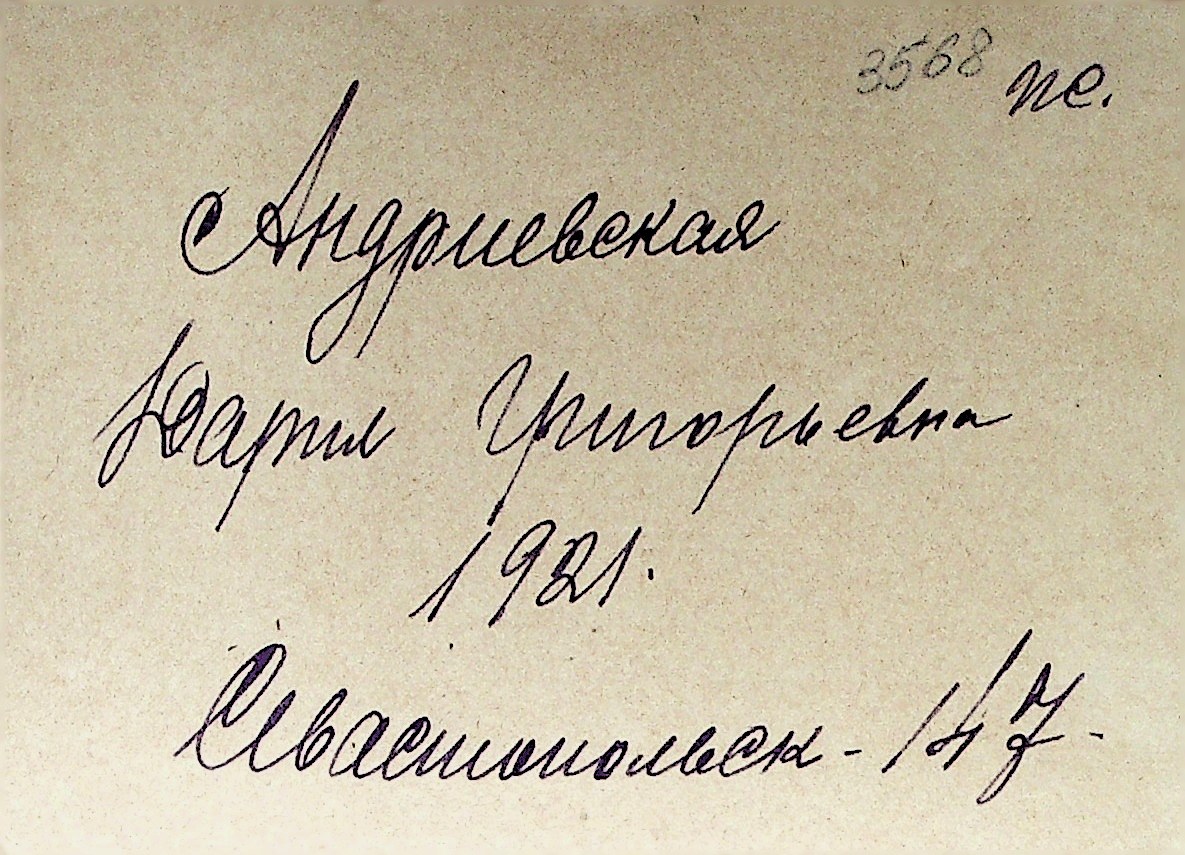 3568 пс.
Андриевская
Дарья Григорьевна
1921.
Севастопольск - 147 -